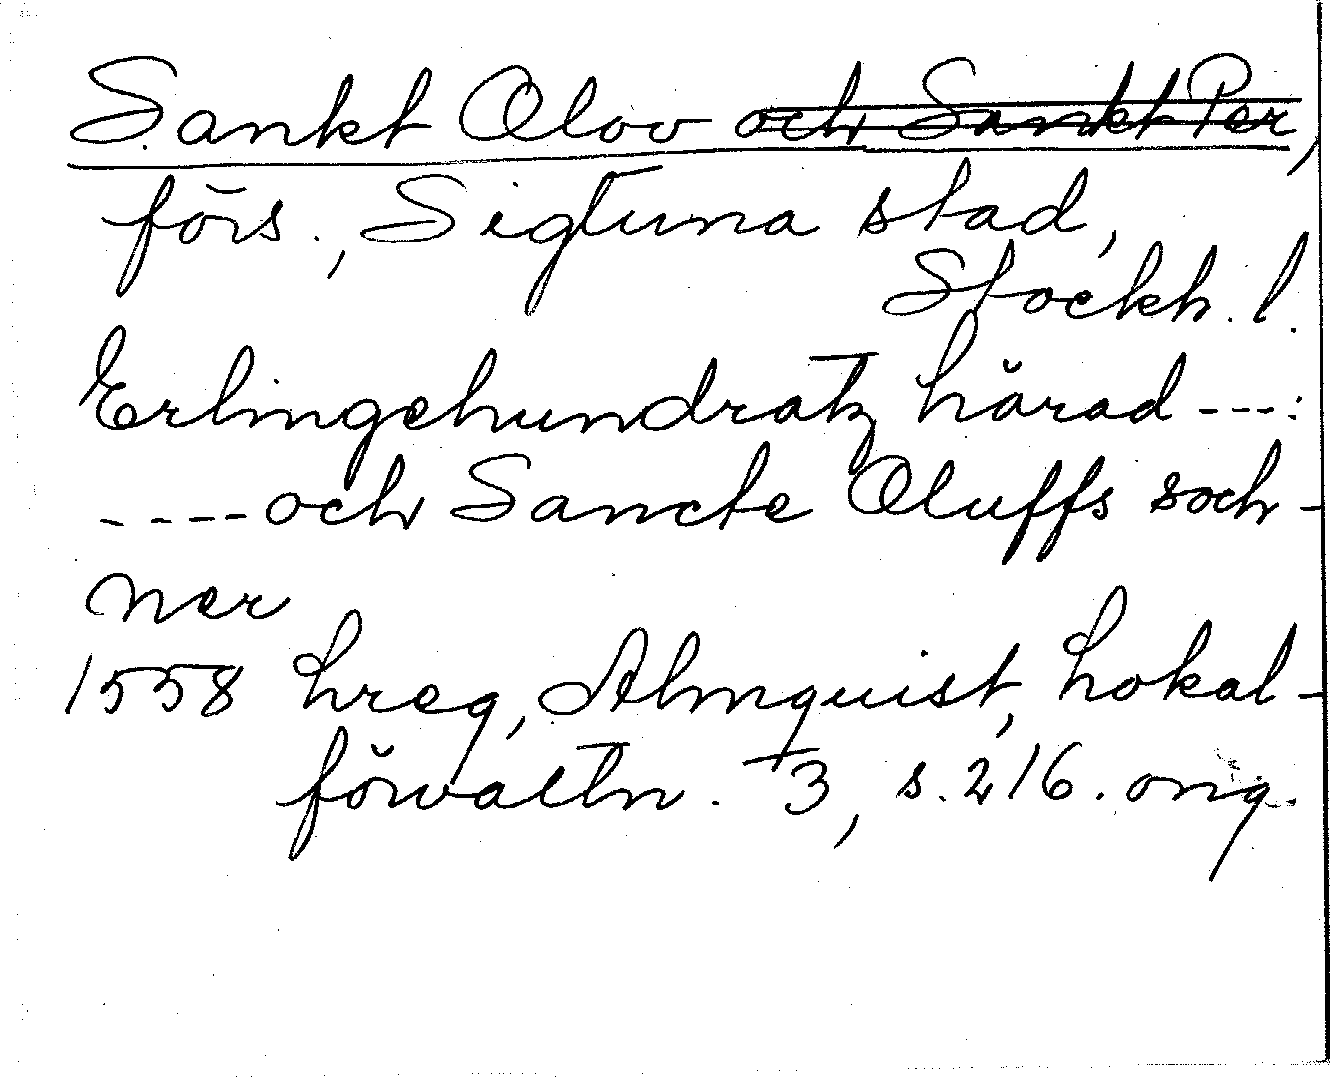 Sankt Olov och Sankt Per,
förs., Sigtuna stad,
Stockh. l.
Erlingehundratz härad ---:
---- och Sancte Oluffs soch-
ner
1558 hreg, Almquist, Lokal-
förvaltn. 3, s. 216. orig.